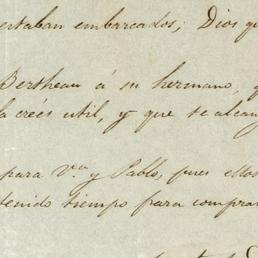 estaban embarcados; Dios qu
Bertheau á su hermano, q
la creés util, y que se alcan
para V.ª y Pablo, pues ellos
tenido tiempo para comprar